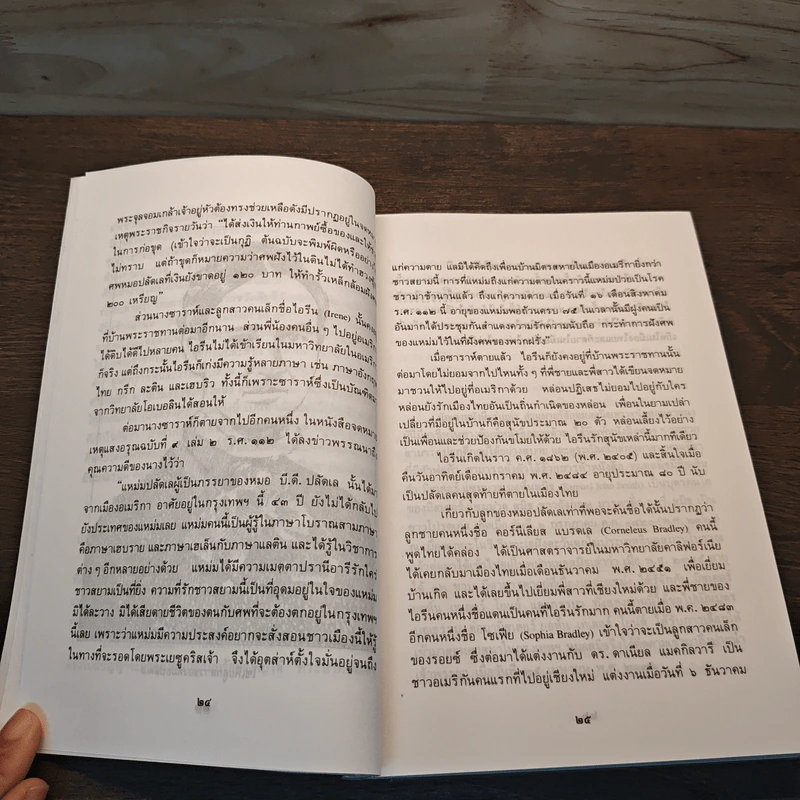 พระจุลจอมเกล้าเจ้าอยู่หัวต้องทรงช่วยเหลือดังมีปรากฏอยู่ในจดหมาย
เหตุพระราชกิจรายวันว่า "ได้ส่งเงินให้ท่านกาพย์ซื้อของและให้
ในการก่อขุด (เข้าใจว่าจะเป็นกุฏิ ต้นฉบับจะพิมพ์ผิดหรืออย่างไร
ไม่ทราบ แต่ถ้าขุดก็หมายความว่าศพฝังไว้ในดินไม่ได้ทำฮวงซุ้ย)
ศพหมอปลัดเลที่เงินยังขาดอยู่ ๑๒๐ บาท ให้ทำรั้วเหล็กล้อมฝัง
๒๐๐ เหรียญ"
ส่วนนางซาราห์และลูกสาวคนเล็กชื่อไอรีน (Irene) นั้นคง
ที่บ้านพระราชทานต่อมาอีกนาน ส่วนพี่น้องคนอื่น ๆ ไปอยู่อเมริกา
ได้ดิบได้ดีไปหลายคน ไอรีนไม่ได้เข้าเรียนในมหาวิทยาลัยในอเมริกา
ก็จริง แต่ถึงกระนั้นไอรีนก็เก่งมีความรู้หลายภาษา เช่น ภาษาอังกฤษ
ไทย กรีก ละติน และเฮบริว ทั้งนี้ก็เพราะซาราห์ซึ่งเป็นบัณฑิต
จากวิทยาลัยโอเบอลินได้สอนให้
ต่อมานางซาราห์ก็ตายจากไปอีกคนหนึ่ง ในหนังสือจดหมาย
เหตุแสงอรุณฉบับที่ ๙ เล่ม ๒ ร.ศ.๑๑๒ ได้ลงข่าวพรรณนาถึง
คุณความดีของนางไว้ว่า
"แหม่มปลัดเลผู้เป็นภรรยาของหมอ บี.ดี. ปลัดเล นั้นได้มา
จากเมืองอเมริกา อาศัยอยู่ในกรุงเทพฯ นี้ ๔๓ ปี ยังไม่ได้กลับไป
ยังประเทศของแหม่มเลย แหม่มคนนี้เป็นผู้รู้ในภาษาโบราณสามภาษา
คือภาษาเฮบราย และภาษาเฮเล็นกับภาษาแลติน และได้รู้ในวิชาการ
ต่าง ๆ อีกหลายอย่างด้วย แหม่มได้มีความเมตตาปรานีอารีรักใคร่
ชาวสยามเป็นที่ยิ่ง ความที่รักชาวสยามนี้เป็นที่อุดมอยู่ในใจของแหม่ม
มิได้ละวาง มิได้เสียดายชีวิตของตนกับศพที่จะต้องตกอยู่ในกรุงเทพฯ
นี้เลย เพราะว่าแหม่มมีความประสงค์อยากจะสั่งสอนชาวเมืองนี้ให้รู้
ในทางที่จะรอดโดยพระเยซูคริสเจ้า จึงได้อุตส่าห์ตั้งใจมั่นอยู่จนถึง
๒๔
แก่ความตาย แลมิได้คิดถึงเพื่อนบ้านมิตรสหายในเมืองอเมริกายิ่งกว่า
ชาวสยามนี้ การที่แหม่มถึงแก่ความตายในคราวนี้แหม่มป่วยเป็นโรค
ชราม่าช้านานแล้ว ถึงแก่ความตาย เมื่อวันที่ ๑๖ เดือนสิงหาคม
ร.ศ. ๑๑๒ นี้ อายุของแหม่มพอถ้วนครบ ๗๕ ในเวลานั้นมีผู้งู่คนเป็น
อันมากได้ประชุมกันสำแดงความรักความนับถือ กระทำการฝังศพ
ของแหม่มไว้ในที่ฝังศพของพวกฝรั่ง"
เมื่อซาราห์ตายแล้ว ไอรีนก็ยังคงอยู่ที่บ้านพระราชทานนั้น
ต่อมาโดยไม่ยอมจากไปไหนทั้ง ๆ ที่พี่ชายและพี่สาวได้เขียนจดหมาย
มาชวนให้ไปอยู่ที่อเมริกาด้วย หล่อนปฏิเสธไม่ยอมไปอยู่กับใคร
หล่อนยังรักเมืองไทยอันเป็นถิ่นกำเนิดของหล่อน เพื่อนในยามเปล่า
เปลี่ยวที่มีอยู่ในบ้านก็คือสุนัขประมาณ ๒๐ ตัว หล่อนเลี้ยงไว้อย่าง
เป็นเพื่อนและช่วยป้องกันขโมยให้ด้วย ไอรีนรักสุนัขเหล่านี้มากทีเดียว
ไอรีนเกิดในราว ค.ศ. ๑๘๖๒ (พ.ศ. ๒๔๐๕) และสิ้นใจเมื่อ
คืนวันอาทิตย์เดือนมกราคม พ.ศ. ๒๔๘๔ อายุประมาณ ๘๐ ปี นับ
เป็นปลัดเลคนสุดท้ายที่ตายในเมืองไทย
เกี่ยวกับลูกของหมอปลัดเลเท่าที่พอจะค้นชื่อได้นั้นปรากฏว่า
ลูกชายคนหนึ่งชื่อ คอร์นีเลียส แบรดเล (Corneleus Bradley) คนนี้
พูดไทยได้คล่อง ได้เป็นศาสตราจารย์ในมหาวิทยาลัยคาลิฟอร์เนีย
ได้เคยกลับมาเมืองไทยเมื่อเดือนธันวาคม พ.ศ. ๒๔๕๑ เพื่อเยี่ยม
บ้านเกิด และได้เลยขึ้นไปเยี่ยมพี่สาวที่เชียงใหม่ด้วย และพี่ชายของ
ไอรีนคนหนึ่งชื่อแดนเป็นคนที่ไอรีนรักมาก คนนี้ตายเมื่อ พ.ศ. ๒๔๘๓
อีกคนหนึ่งชื่อ โซเฟีย (Sophia Bradley) เข้าใจว่าจะเป็นลูกสาวคนเล็ก
ของรอยซ์ ซึ่งต่อมาได้แต่งงานกับ ดร. ดาเนียล แมคกิลวารี เป็น
ชาวอเมริกันคนแรกที่ไปอยู่เชียงใหม่ แต่งงานเมื่อวันที่ ๖ ธันวาคม
๒๕